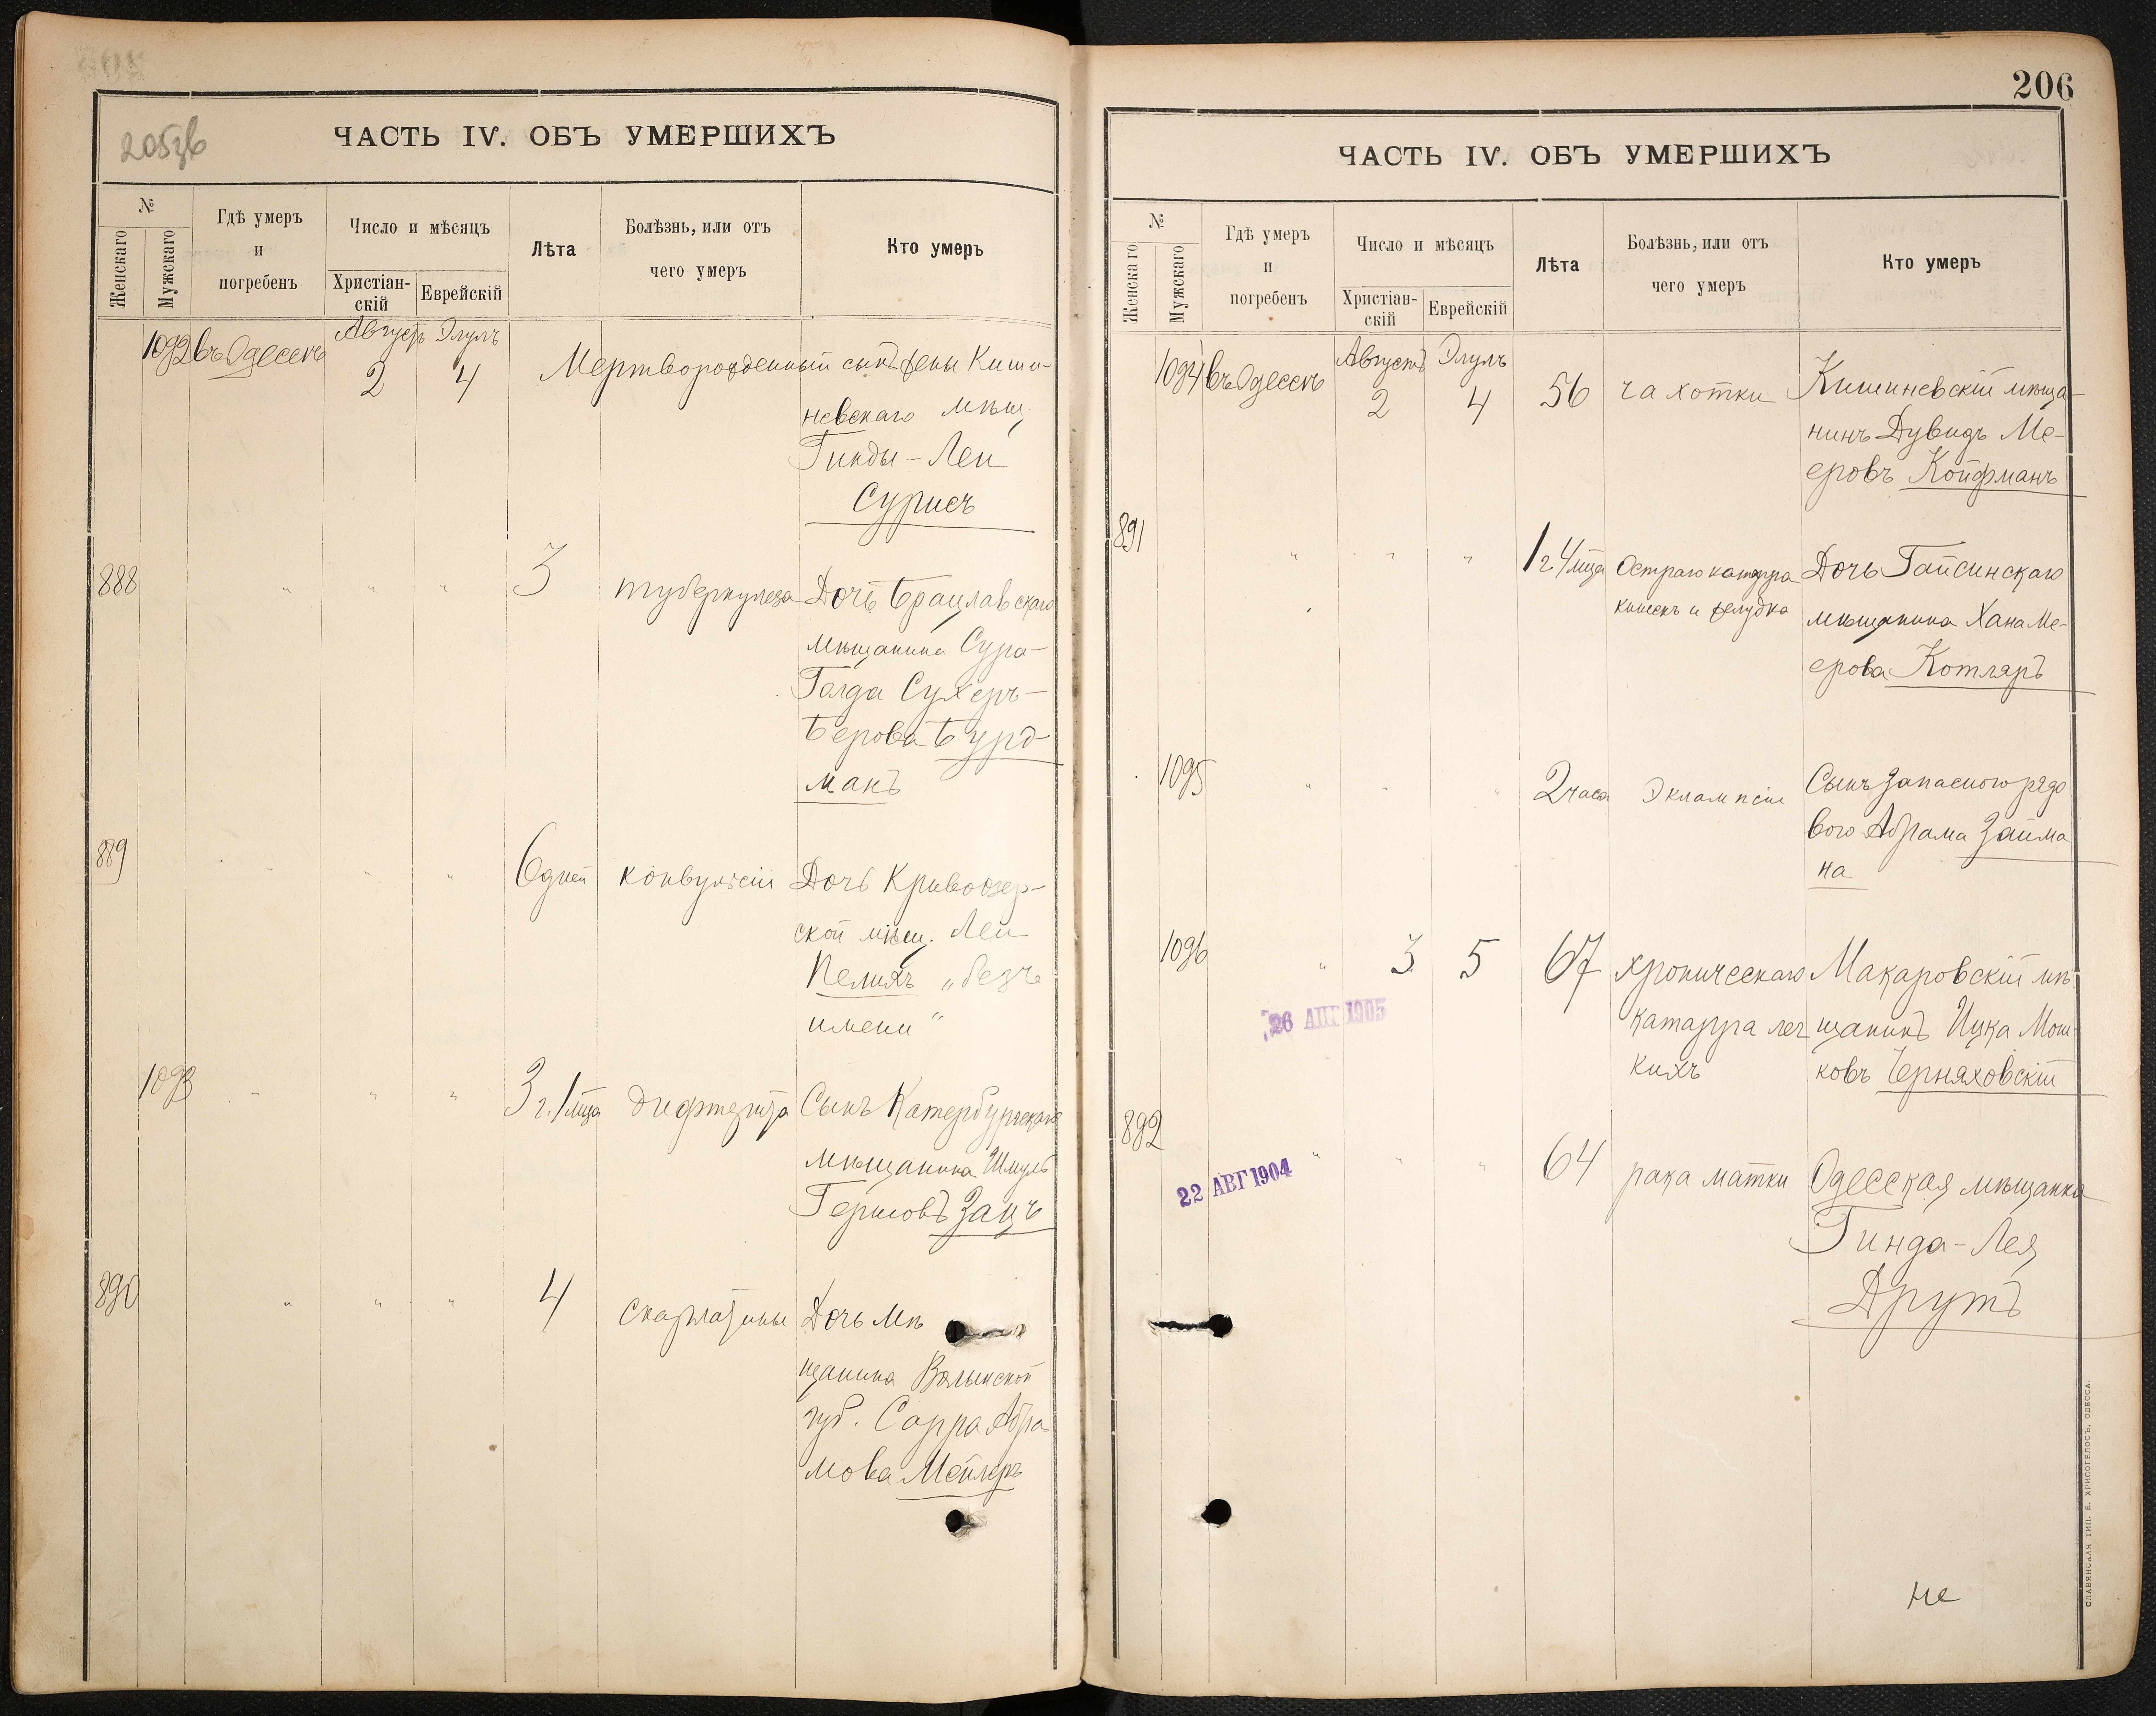 205зв
ЧАСТЬ IV. ОБЪ УМЕРШИХЪ
№
Женскаго
Мужскаго
Гдѣ умеръ
и
погребенъ
Число и мѣсяцъ
Христіан-
скій
Еврейскій
Лѣта
Болѣзнь, или отъ
чего умеръ
Кто умеръ
Августъ Элулъ
1092 въ Одессѣ 2 4 Мертворожденный сынъ жены Киши-
невскаго мѣщ.
Гинды-Леи
Сурисъ
888 " " " 3 туберкулеза Дочь Брацлавскаго
мѣщанина Сура-
Голда Сухеръ-
Берова Бурд-
манъ
889 " " " 6 дней конвульсіи Дочь Кривоозер-
ской мѣщ. Леи
Пелихъ „безъ
имени"
1093 " " " 3 г. 1 мца дифтерита Сынъ Катербургскаго
мѣщанина Шмуль
Гершовъ Зацъ
890 " " " 4 скарлатины Дочь мѣ
щанина Волынской
губ. Сарра Абра
мова Мейлеръ
206
ЧАСТЬ IV. ОБЪ УМЕРШИХЪ
№
Женскаго
Мужскаго
Гдѣ умеръ
и
погребенъ
Число и мѣсяцъ
Христіан-
скій
Еврейскій
Лѣта
Болѣзнь, или отъ
чего умеръ
Кто умеръ
Августъ Элулъ
1094 въ Одессѣ 2 4 56 чахотки Кишиневскій мѣща-
нинъ Дувидъ Ме-
еровъ Койфманъ
891 " " " 1 г. 4 мца Остраго катарра Дочь Гайсинскаго
кишекъ и желудка мѣщанина Хана Ме-
ерова Котляръ
1095 " " " 2 часа Эклампсіи Сынъ запасного рядо
вого Абрама Займа
на
1096 " 3 5 67 хроническаго Макаровскій мѣ
26 АПР 1905
катарра лег щанинъ Ицка Мош-
кихъ ковъ Черняховскій
892 " " " 64 рака матки Одесская мѣщанка
22 АВГ 1904
Гинда-Лея
Друтъ
не
СЛАВЯНСКАЯ ТИП. Е. ХРИСОГЕЛОСЪ, ОДЕССА.